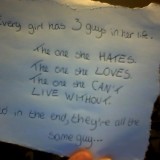 Every girl has 3 guys in her life..
The one she HATES.
The one she LOVES.
The one she CAN'T
LIVE WITHOUT.
And in the end, they're all the
same guy...